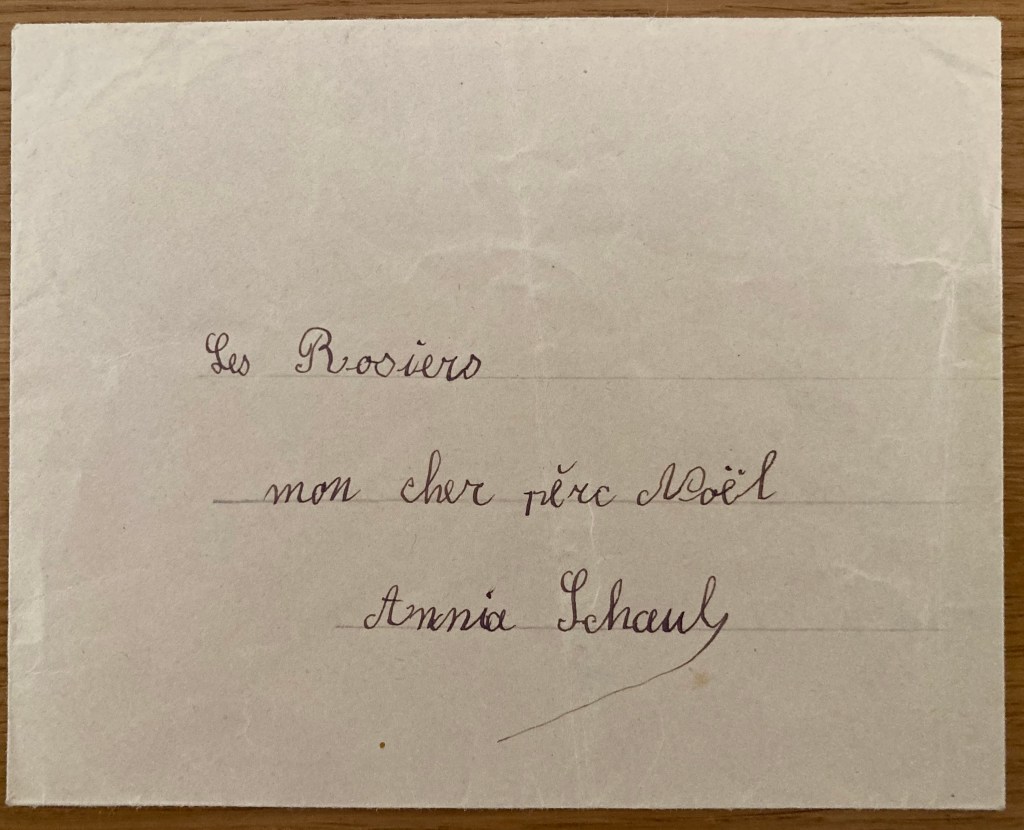 Les Rosiers
mon cher père Noël
Annia Schaul